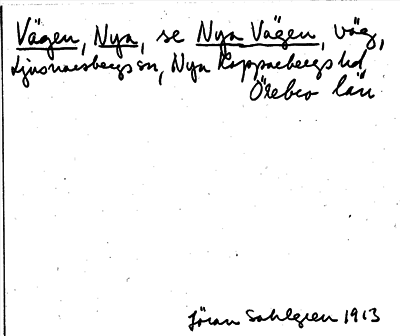 Vägen, Nya, se Nya Vägen, väg,
Ljusnarsbergs sn, Nya Kopparbergs hd
Örebro län
Jöran Sahlgren 1913